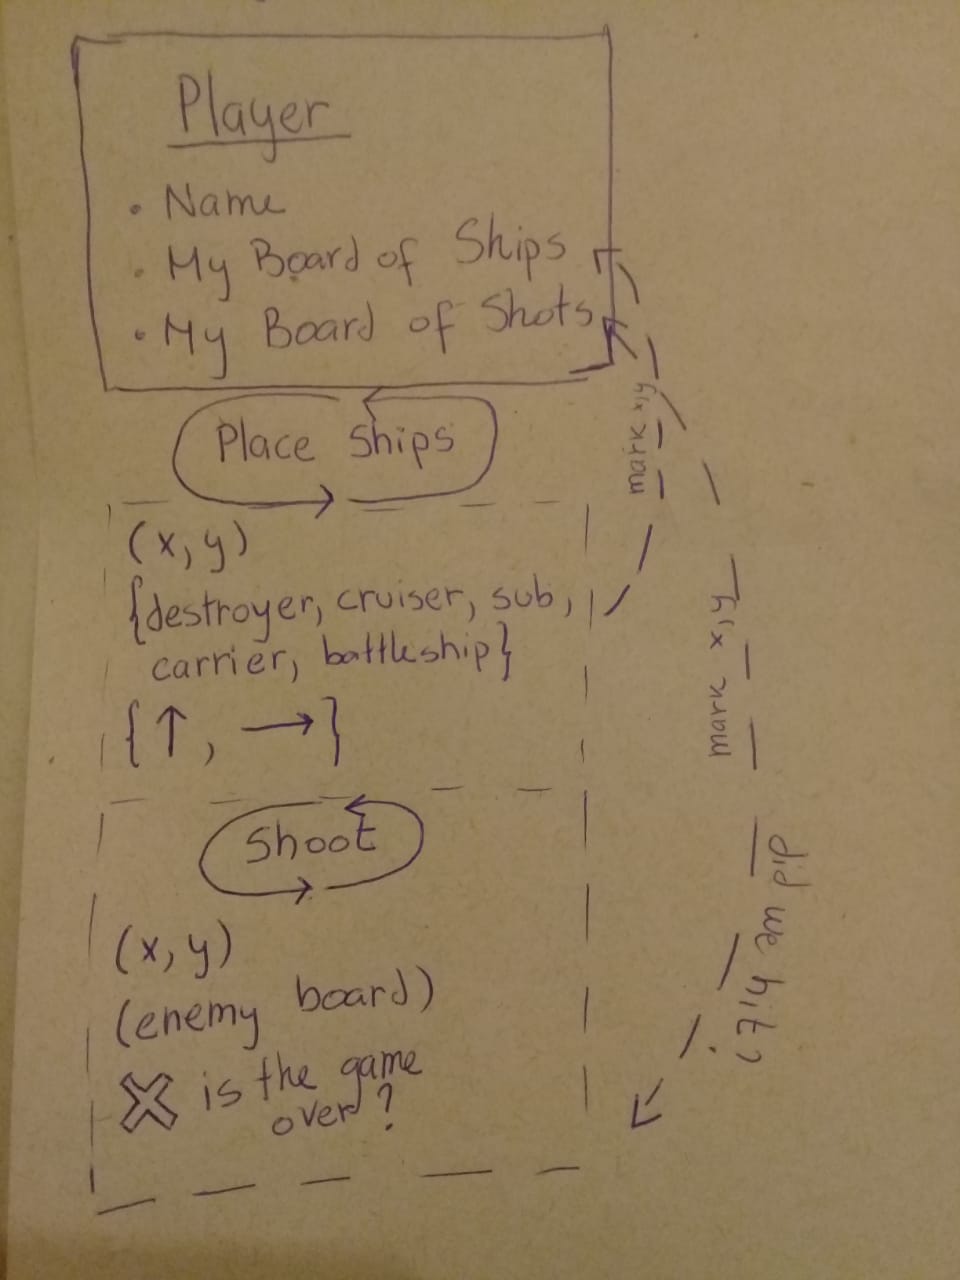 Player
• Name
• My Board of Ships
• My Board of Shots
Place Ships
(x, y)
{destroyer, cruiser, sub,
carrier, battleship}
{↑, →}
mark x,y
Shoot
(x, y)
(enemy board)
X is the game
over?
mark x,y
did we hit?